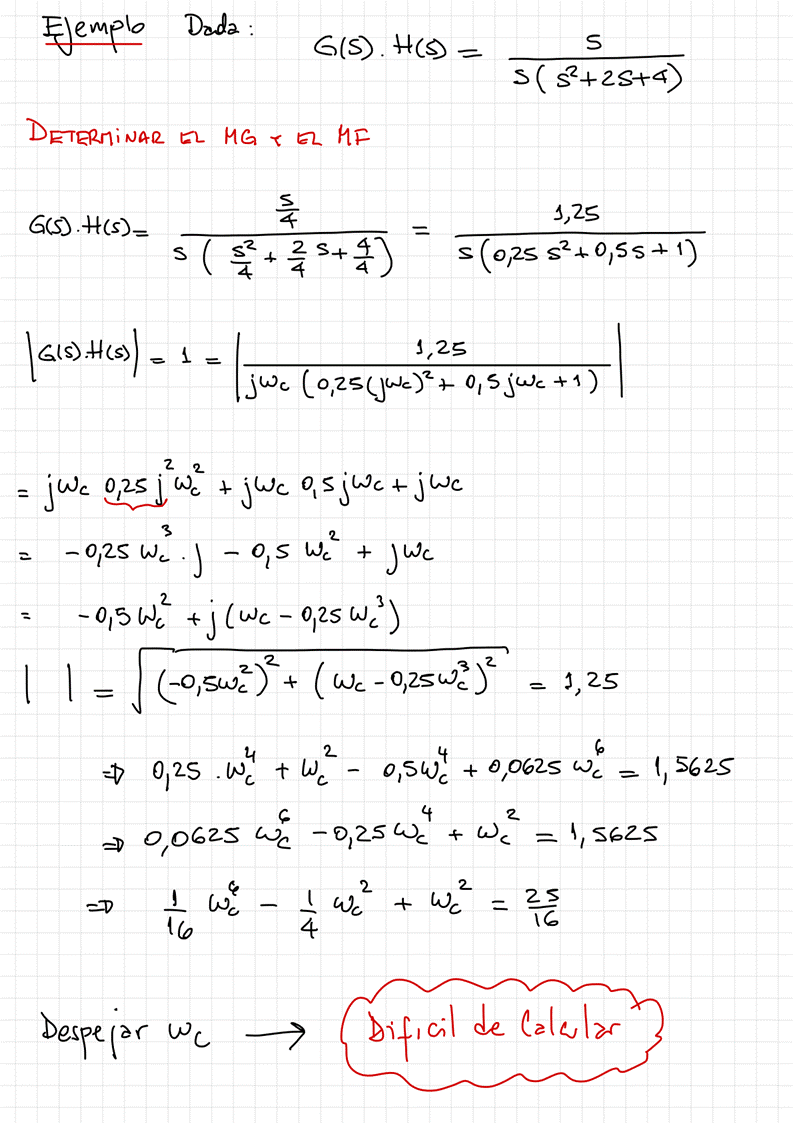 Ejemplo Dada:
G(S).H(S) = 5 / s(s²+2s+4)
DETERMINAR EL MG Y EL MF
G(S).H(S) = (5/4) / s(s²/4 + 2/4 s + 4/4) = 1,25 / s(0,25 s² + 0,5s + 1)
|G(S).H(S)| = 1 = |1,25 / jωc (0,25(jωc)² + 0,5jωc + 1)|
= jωc 0,25 j² ωc² + jωc 0,5jωc + jωc
= -0,25 ωc³ . j - 0,5 ωc² + jωc
= -0,5ωc² + j(ωc - 0,25 ωc³)
| | = √((-0,5ωc²)² + (ωc - 0,25ωc³)²) = 1,25
⇒ 0,25 . ωc⁴ + ωc² - 0,5ωc⁴ + 0,0625 ωc⁶ = 1,5625
⇒ 0,0625 ωc⁶ - 0,25ωc⁴ + ωc² = 1,5625
⇒ 1/16 ωc⁶ - 1/4 ωc² + ωc² = 25/16
Despejar ωc → Dificil de Calcular